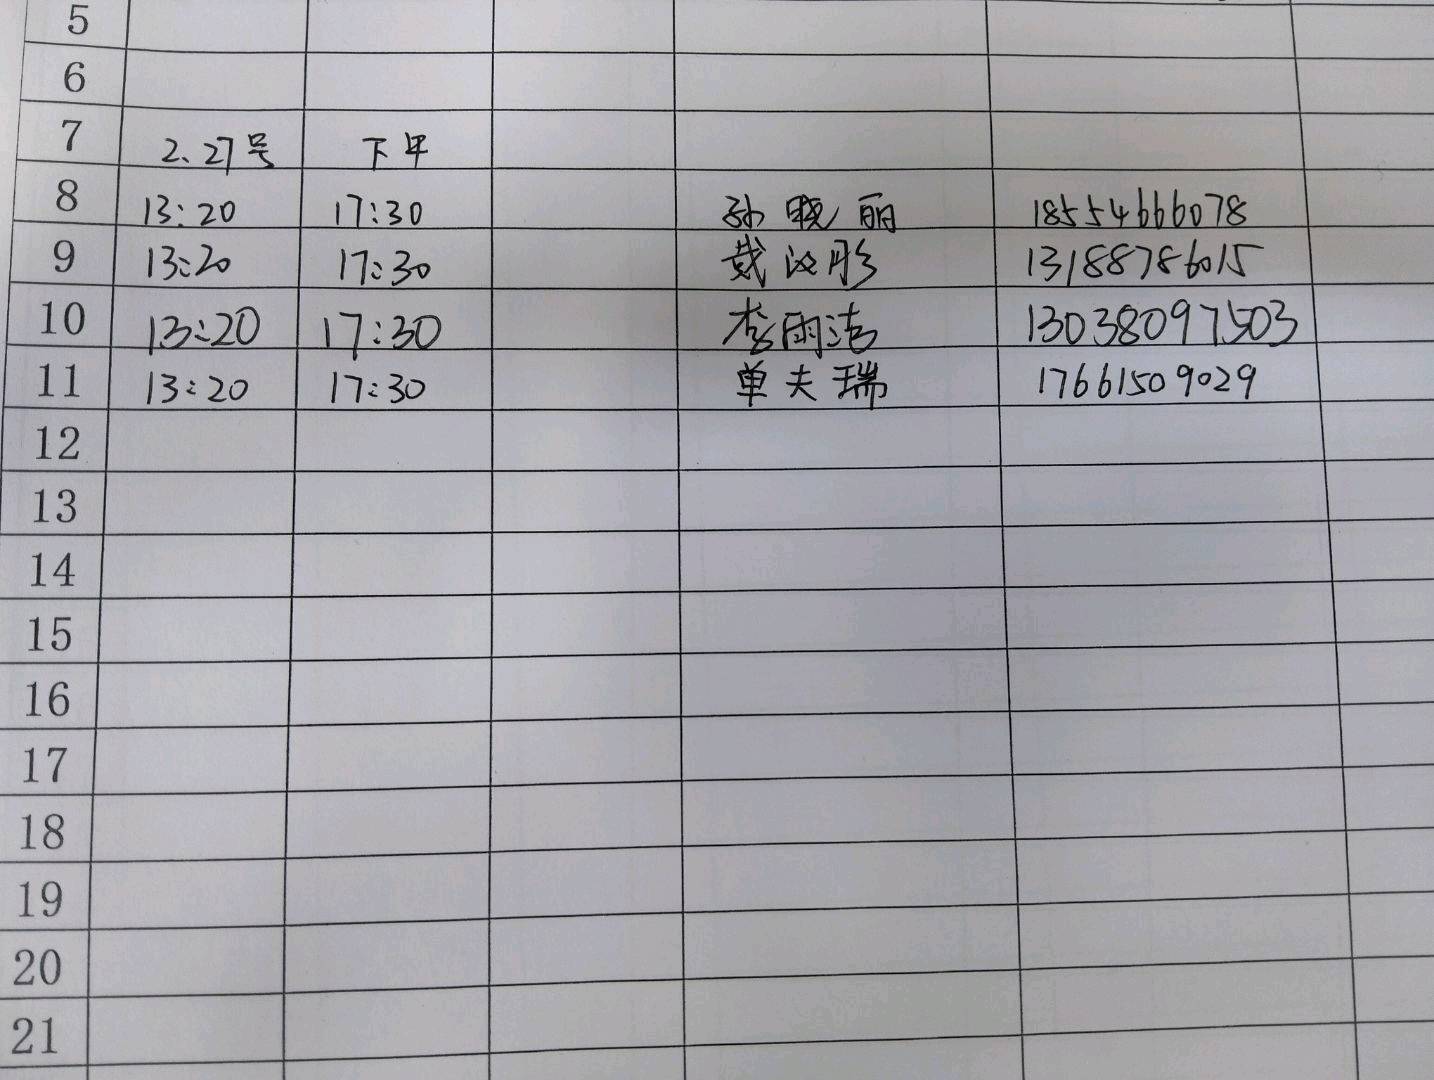 5
6
7 2.27号 下午
8 13:20 17:30 孙晓丽 18554666078
9 13:20 17:30 戴汶彤 13188786015
10 13:20 17:30 李雨洁 13038097503
11 13:20 17:30 单夫瑞 17661509029
12
13
14
15
16
17
18
19
20
21